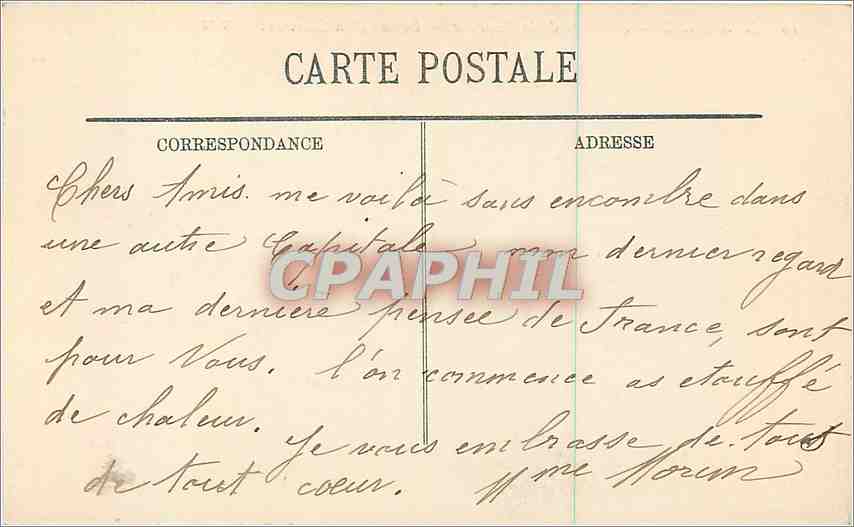 CARTE POSTALE
CORRESPONDANCE
ADRESSE
Chers Amis. me voilà sans encombre dans
une autre Capitale mon dernier regard
CPAPHIL
et ma dernière pensée de France, sont
pour Vous. l'on commence as etouffé
de chaleur.
Je vous embrasse de tous
de tout cœur. Mme